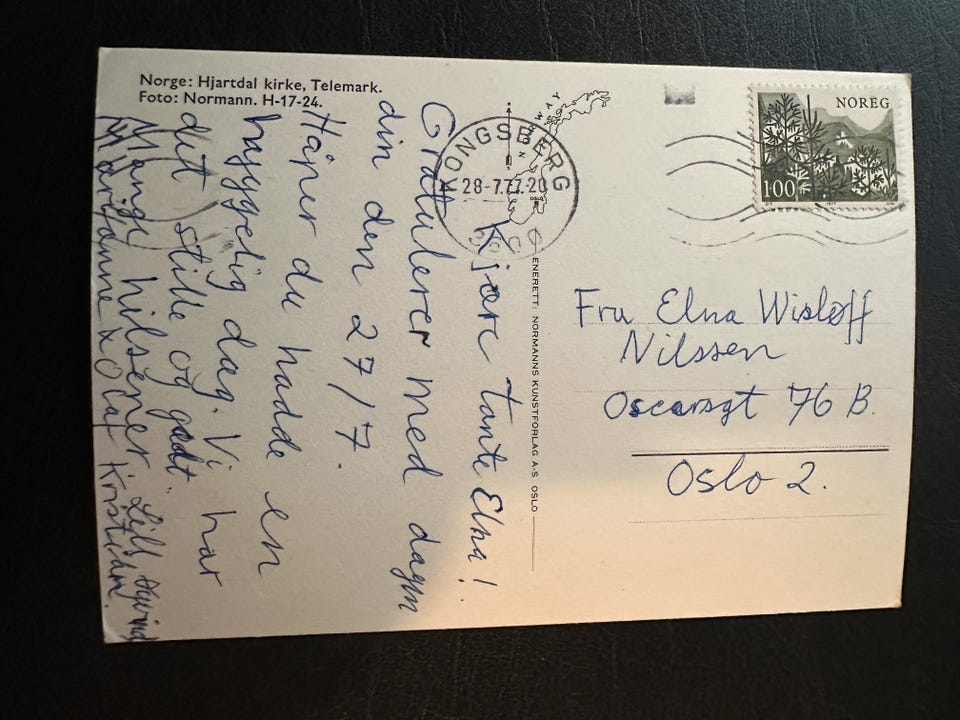 Norge: Hjartdal kirke, Telemark.
Foto: Normann. H-17-24.
Kjære tante Elna!
Gratulerer med dagen
din den 27/7.
Håper du hadde en
hyggelig dag. Vi har
det stille og godt.
Mange hilsener Lill Øyvind
Olaf Kristian.
NORWAY
OSLO
KONGSBERG
28-7.77.20
ENERETT: NORMANNS KUNSTFORLAG A·S OSLO
NOREG
100
1977
Fru Elna Wisløff
Nilssen
Oscarsgt 76 B.
Oslo 2.